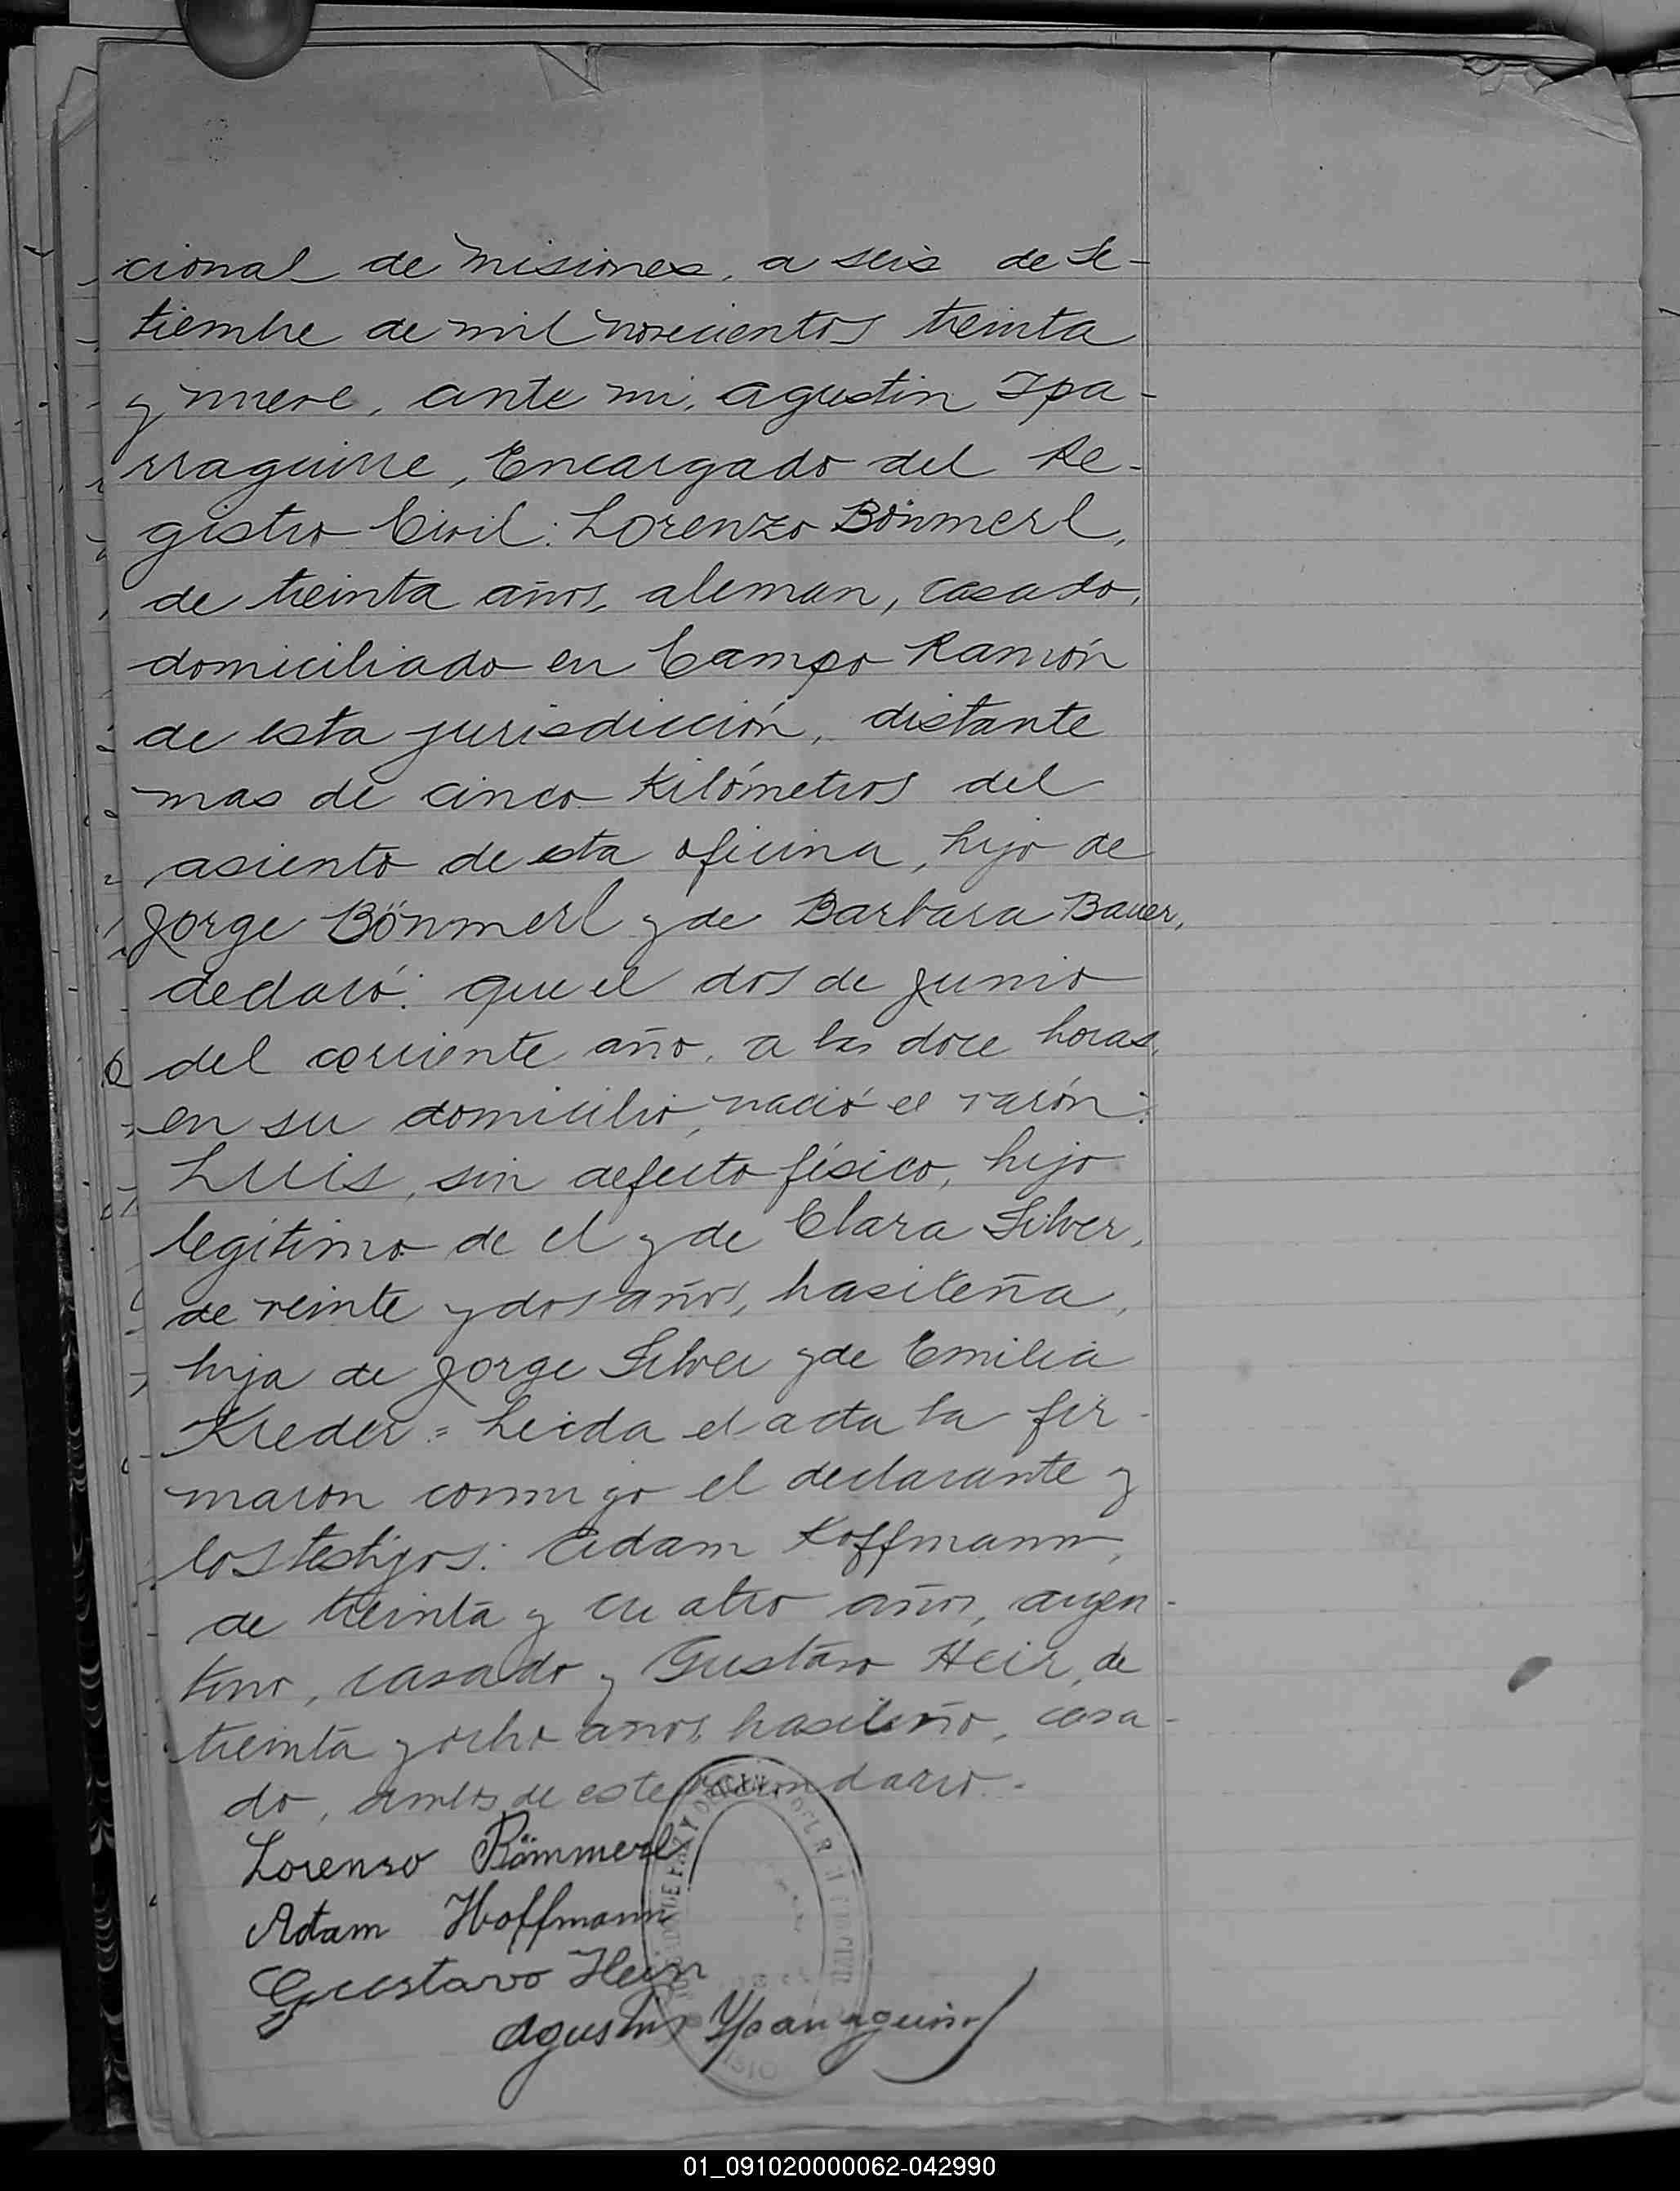 cional de Misiones, a seis de Se-
tiembre de mil novecientos treinta
y nueve, ante mi, Agustin Ipa-
rraguirre, Encargado del Re-
gistro Civil: Lorenzo Bönmerl,
de treinta años, aleman, casado,
domiciliado en Campo Ramón
de esta jurisdicción, distante
mas de cinco Kilómetros del
asiento de esta oficina, hijo de
Jorge Bönmerl y de Barbara Bauer,
declaró: que el dos de Junio
del corriente año, a las doce horas,
en su domicilio, nació el varón:
Luis, sin defecto físico, hijo
legítimo de el y de Clara Silver,
de veinte y dos años, brasileña,
hija de Jorge Silver y de Emilia
Kreder = Leida el acta la fir-
maron conmigo el declarante y
los testigos: Adam Hoffmann,
de treinta y cuatro años, argen-
tino, casado y Gustavo Heir, de
treinta y ocho años, brasileño, casa-
do, ambos de este vecindario.-
Lorenso Bömmerl
Adam Hoffmann
Gustavo Hein
Agustin Yparraguirre
01_091020000062-042990